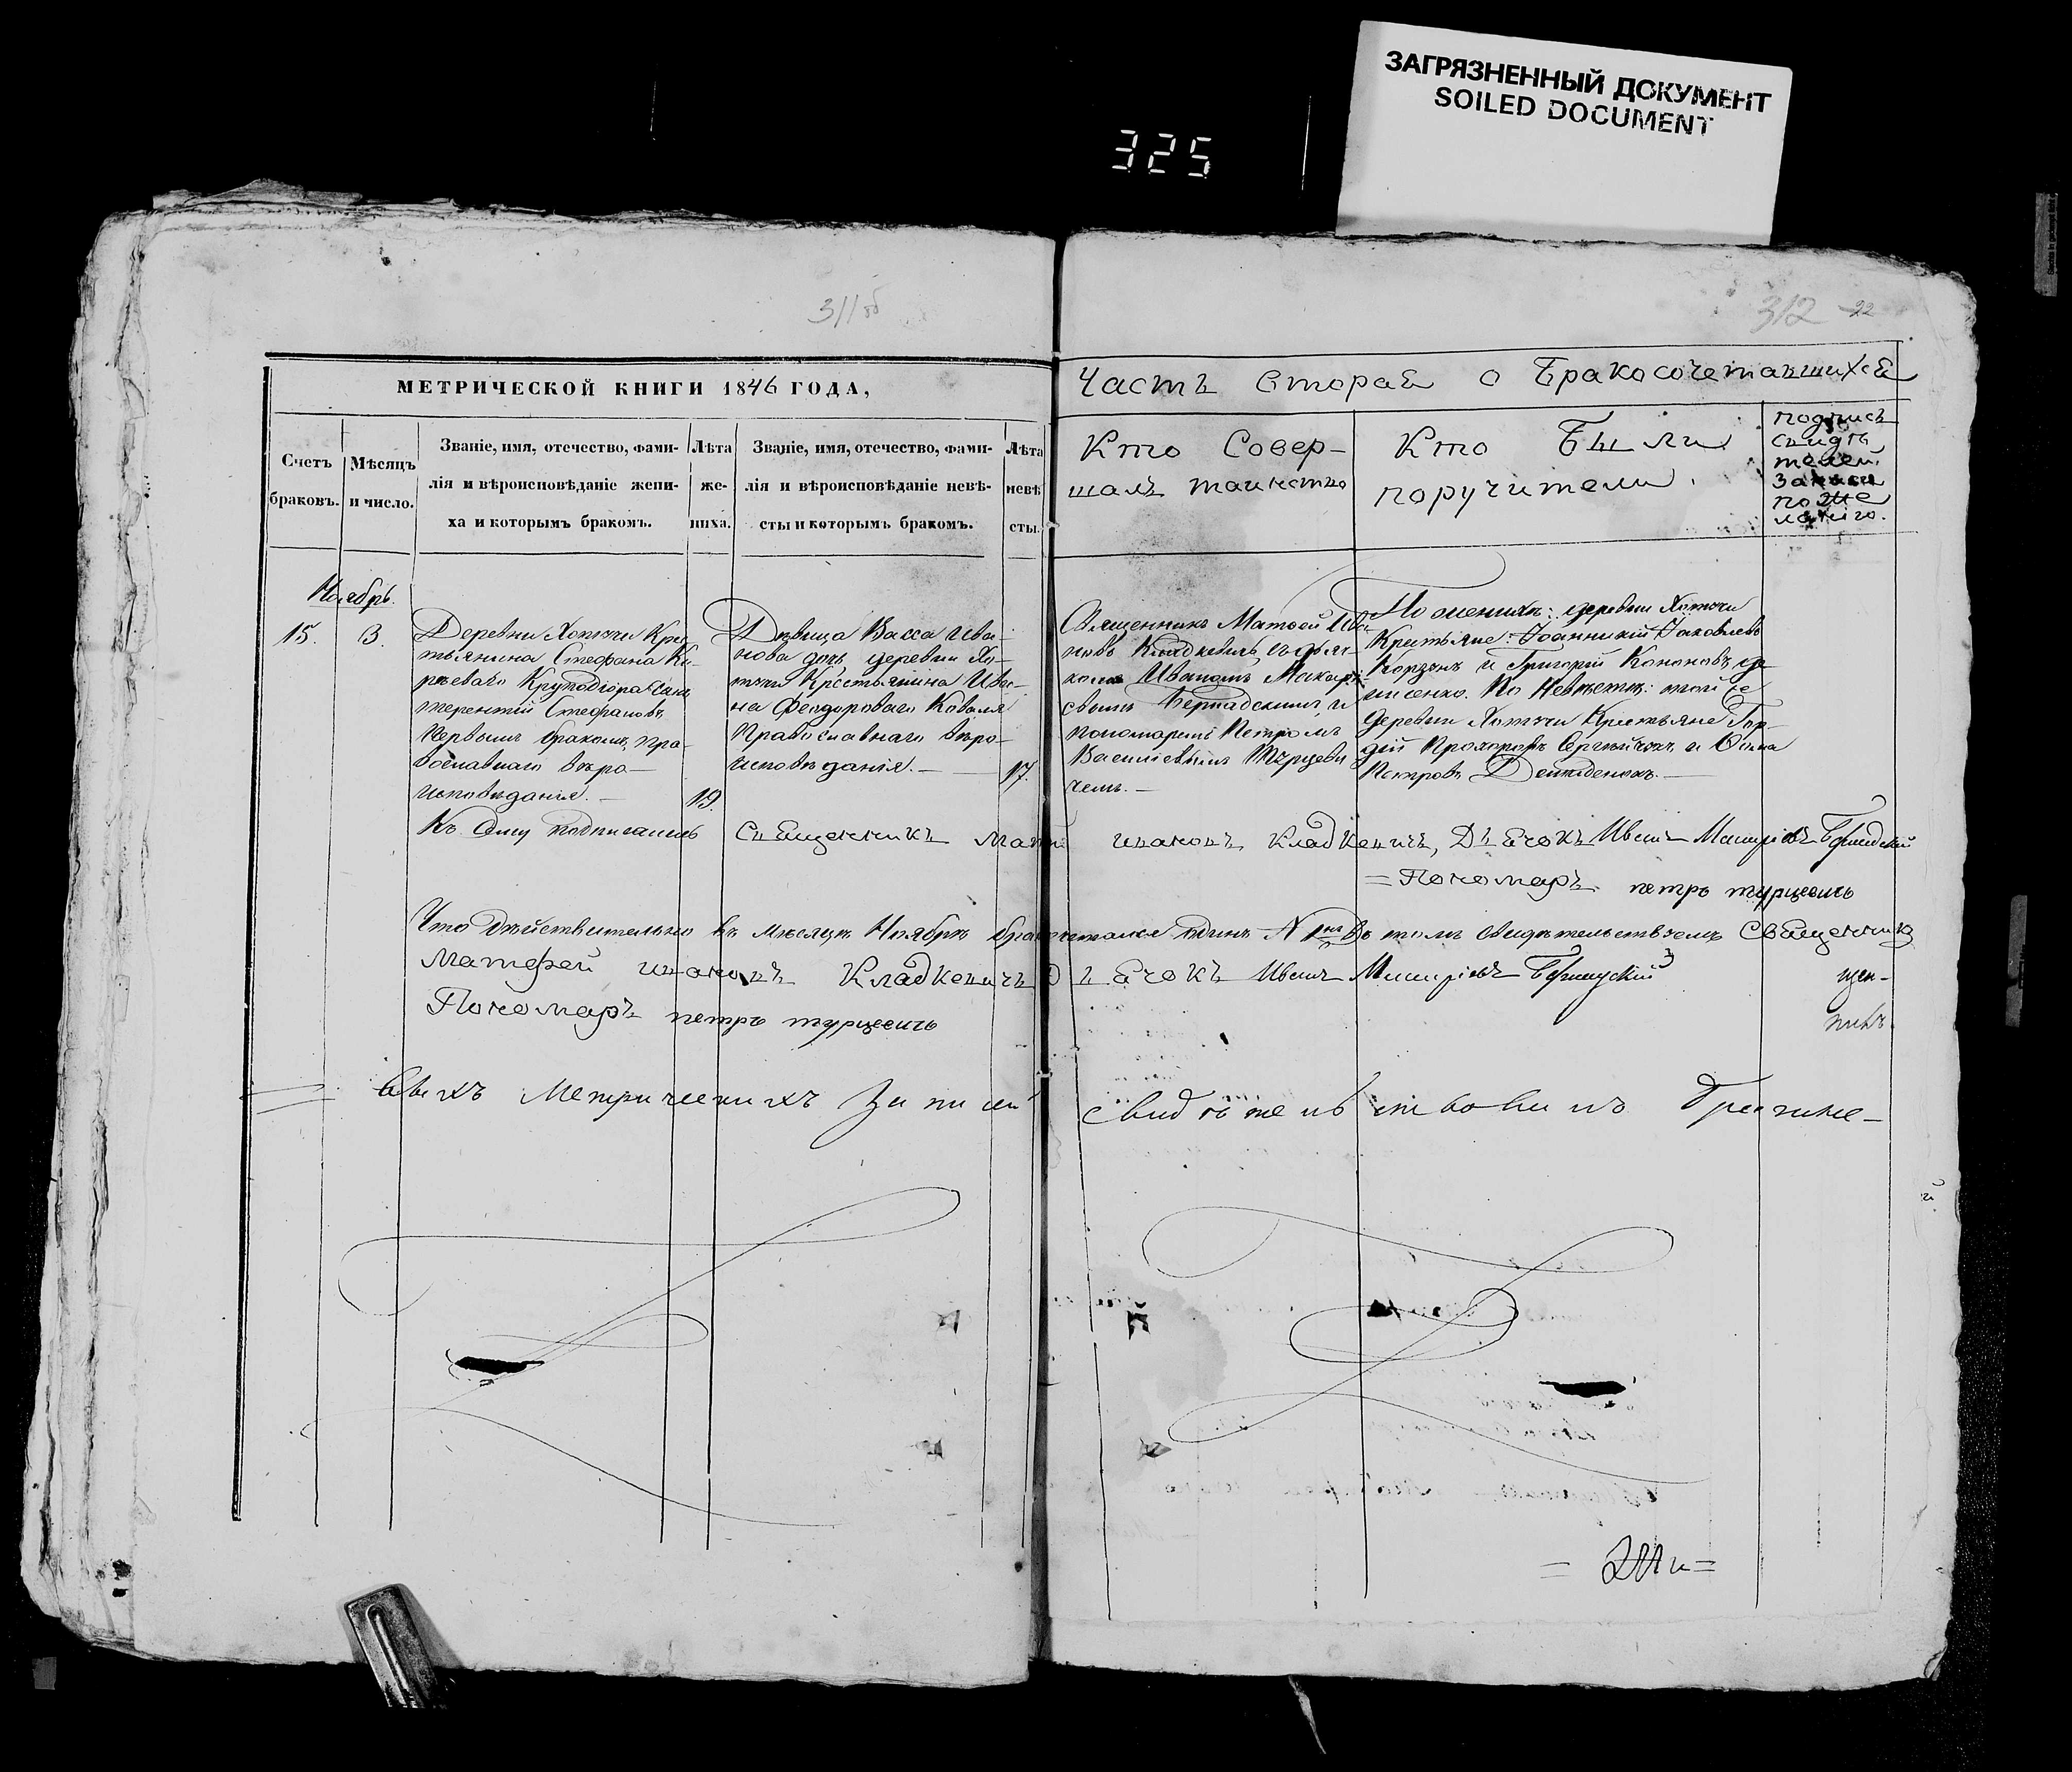 ЗАГРЯЗНЕННЫЙ ДОКУМЕНТ
SOILED DOCUMENT
325
311об
312
22
МЕТРИЧЕСКОЙ КНИГИ 1846 ГОДА,
Часть вторая о Бракосочетавшихся
Счетъ браковъ.
Мѣсяцъ и число.
Званіе, имя, отечество, фами-
лія и вѣроисповѣданіе жени-
ха и которымъ бракомъ.
Лѣта
же-
ниха.
Званіе, имя, отечество, фами-
лія и вѣроисповѣданіе невѣ-
сты и которымъ бракомъ.
Лѣта
невѣ
сты.
Кто Совер-
шалъ таинство
Кто Были
поручители.
подпись
свидѣ
телей
записи
по же
ланію.
Ноябрь.
15.
3.
Деревни Хотючи Крес
тьянина Стефана Ки-
рѣеваго
терентій Стефановъ
первымъ бракомъ, пра-
вославнаго вѣро-
исповѣданія.—
19.
Дѣвица Васса Ива-
нова дочь деревни Хо-
тючи Крестьянина Ива-
на Феодороваго Коваля
Православнаго вѣро-
исповѣданія.—
17.
Священникъ Матфей Ива-
новъ Кладкевичъ съ дьяч-
комъ Иваномъ Макарі-
евымъ и
пономаремъ Петромъ
Василіевымъ Турцеви
чемъ.—
По женихѣ: деревни Хотючи
Крестьяне: Іоанникій Яковлевъ
Корзунъ и Григорій Кононовъ
По Невѣстѣ: той же
деревни Хотючи Крестьяне Гор-
дій Прохоровъ и
Петровъ
Къ Сему подписались Священникъ Матфей ивановъ Кладкевичъ, Дьячокъ Иванъ Макаріевъ
=Пономарь петръ турцевичъ
Что дѣйствительно въ мѣсяцѣ Ноябрѣ одинъ въ томъ свидѣтельствуемъ Священникъ
Матфей ивановъ Кладкевичъ Дьячокъ Иванъ Макаріевъ
Пономарь петръ турцевичъ
щен-
никъ.
Метрическихъ записей свидѣтельствовалъ